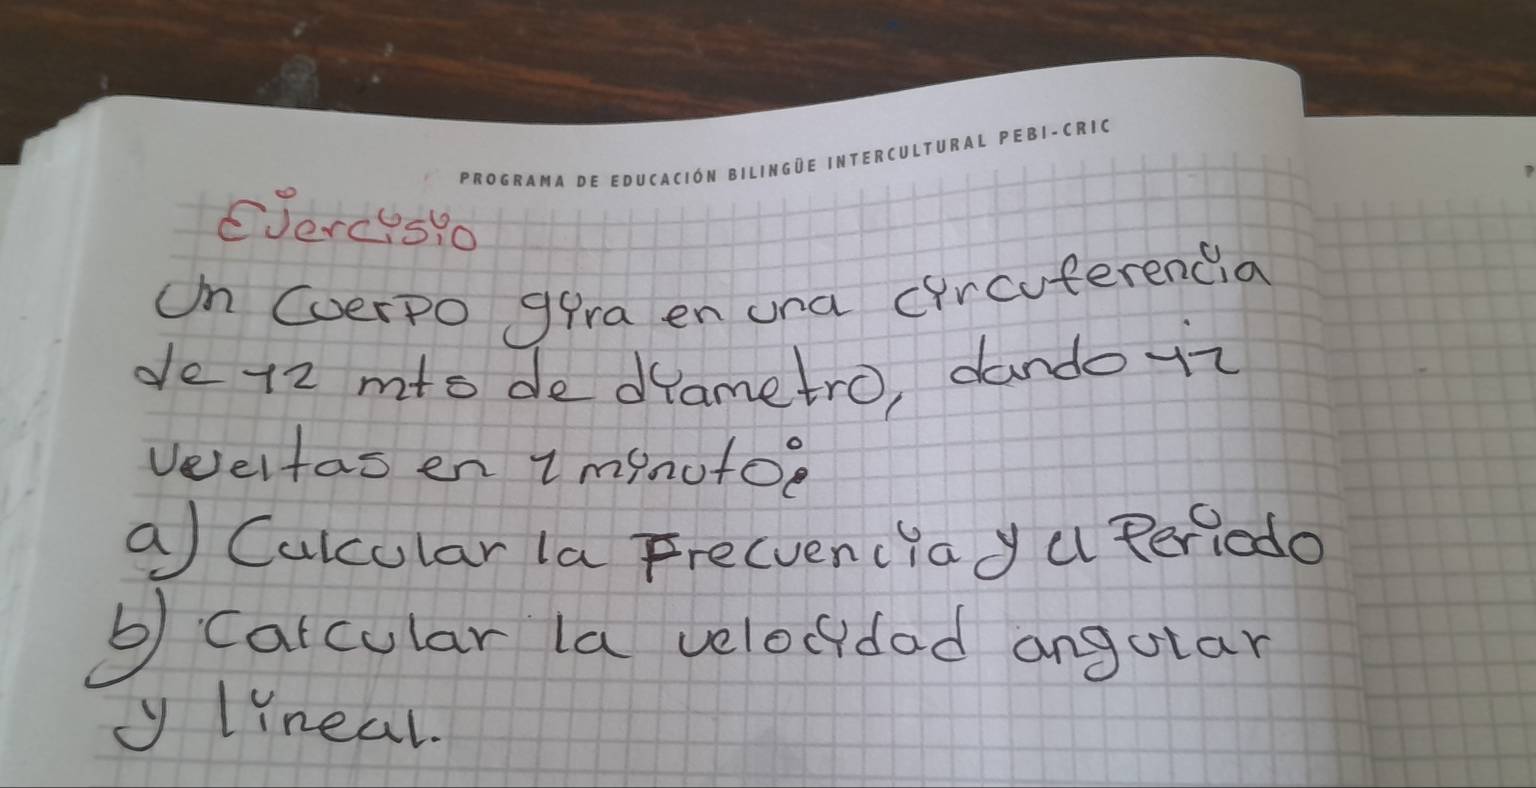 PROGRAMA DE EDUCACIÓN BILINGÜE INTERCULTURAL PEBI-CRIC
Ejercisio
Un Cuerpo gira en una circuferencia
de 12 mts de diametro, dando 12
vueltas en 1 minuto:
a) Calcular la Frecuencia y el Periodo
b) Calcular la velocidad angular
y lineal.